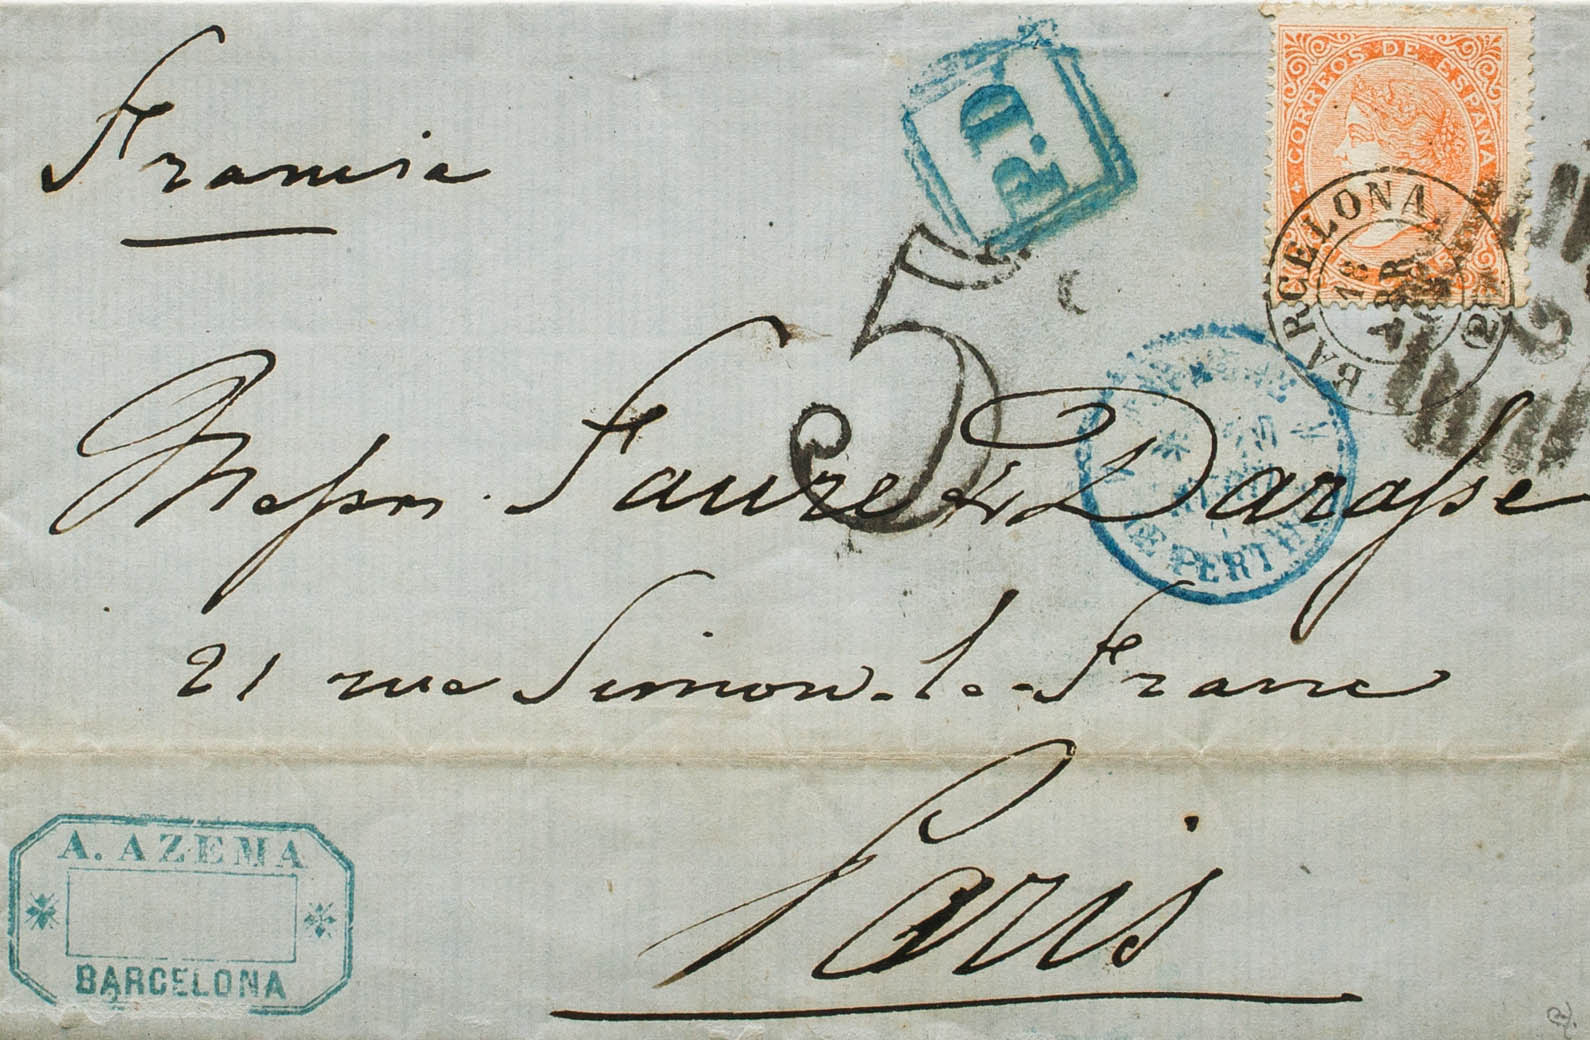 Francia
P.D
CORREOS DE ESPAÑA
BARCELONA
18
ABR
5
Messrs Faure & Darasse
LE PERTHUS
21 rue Simon-le-Franc
Paris
A. AZEMA
BARCELONA